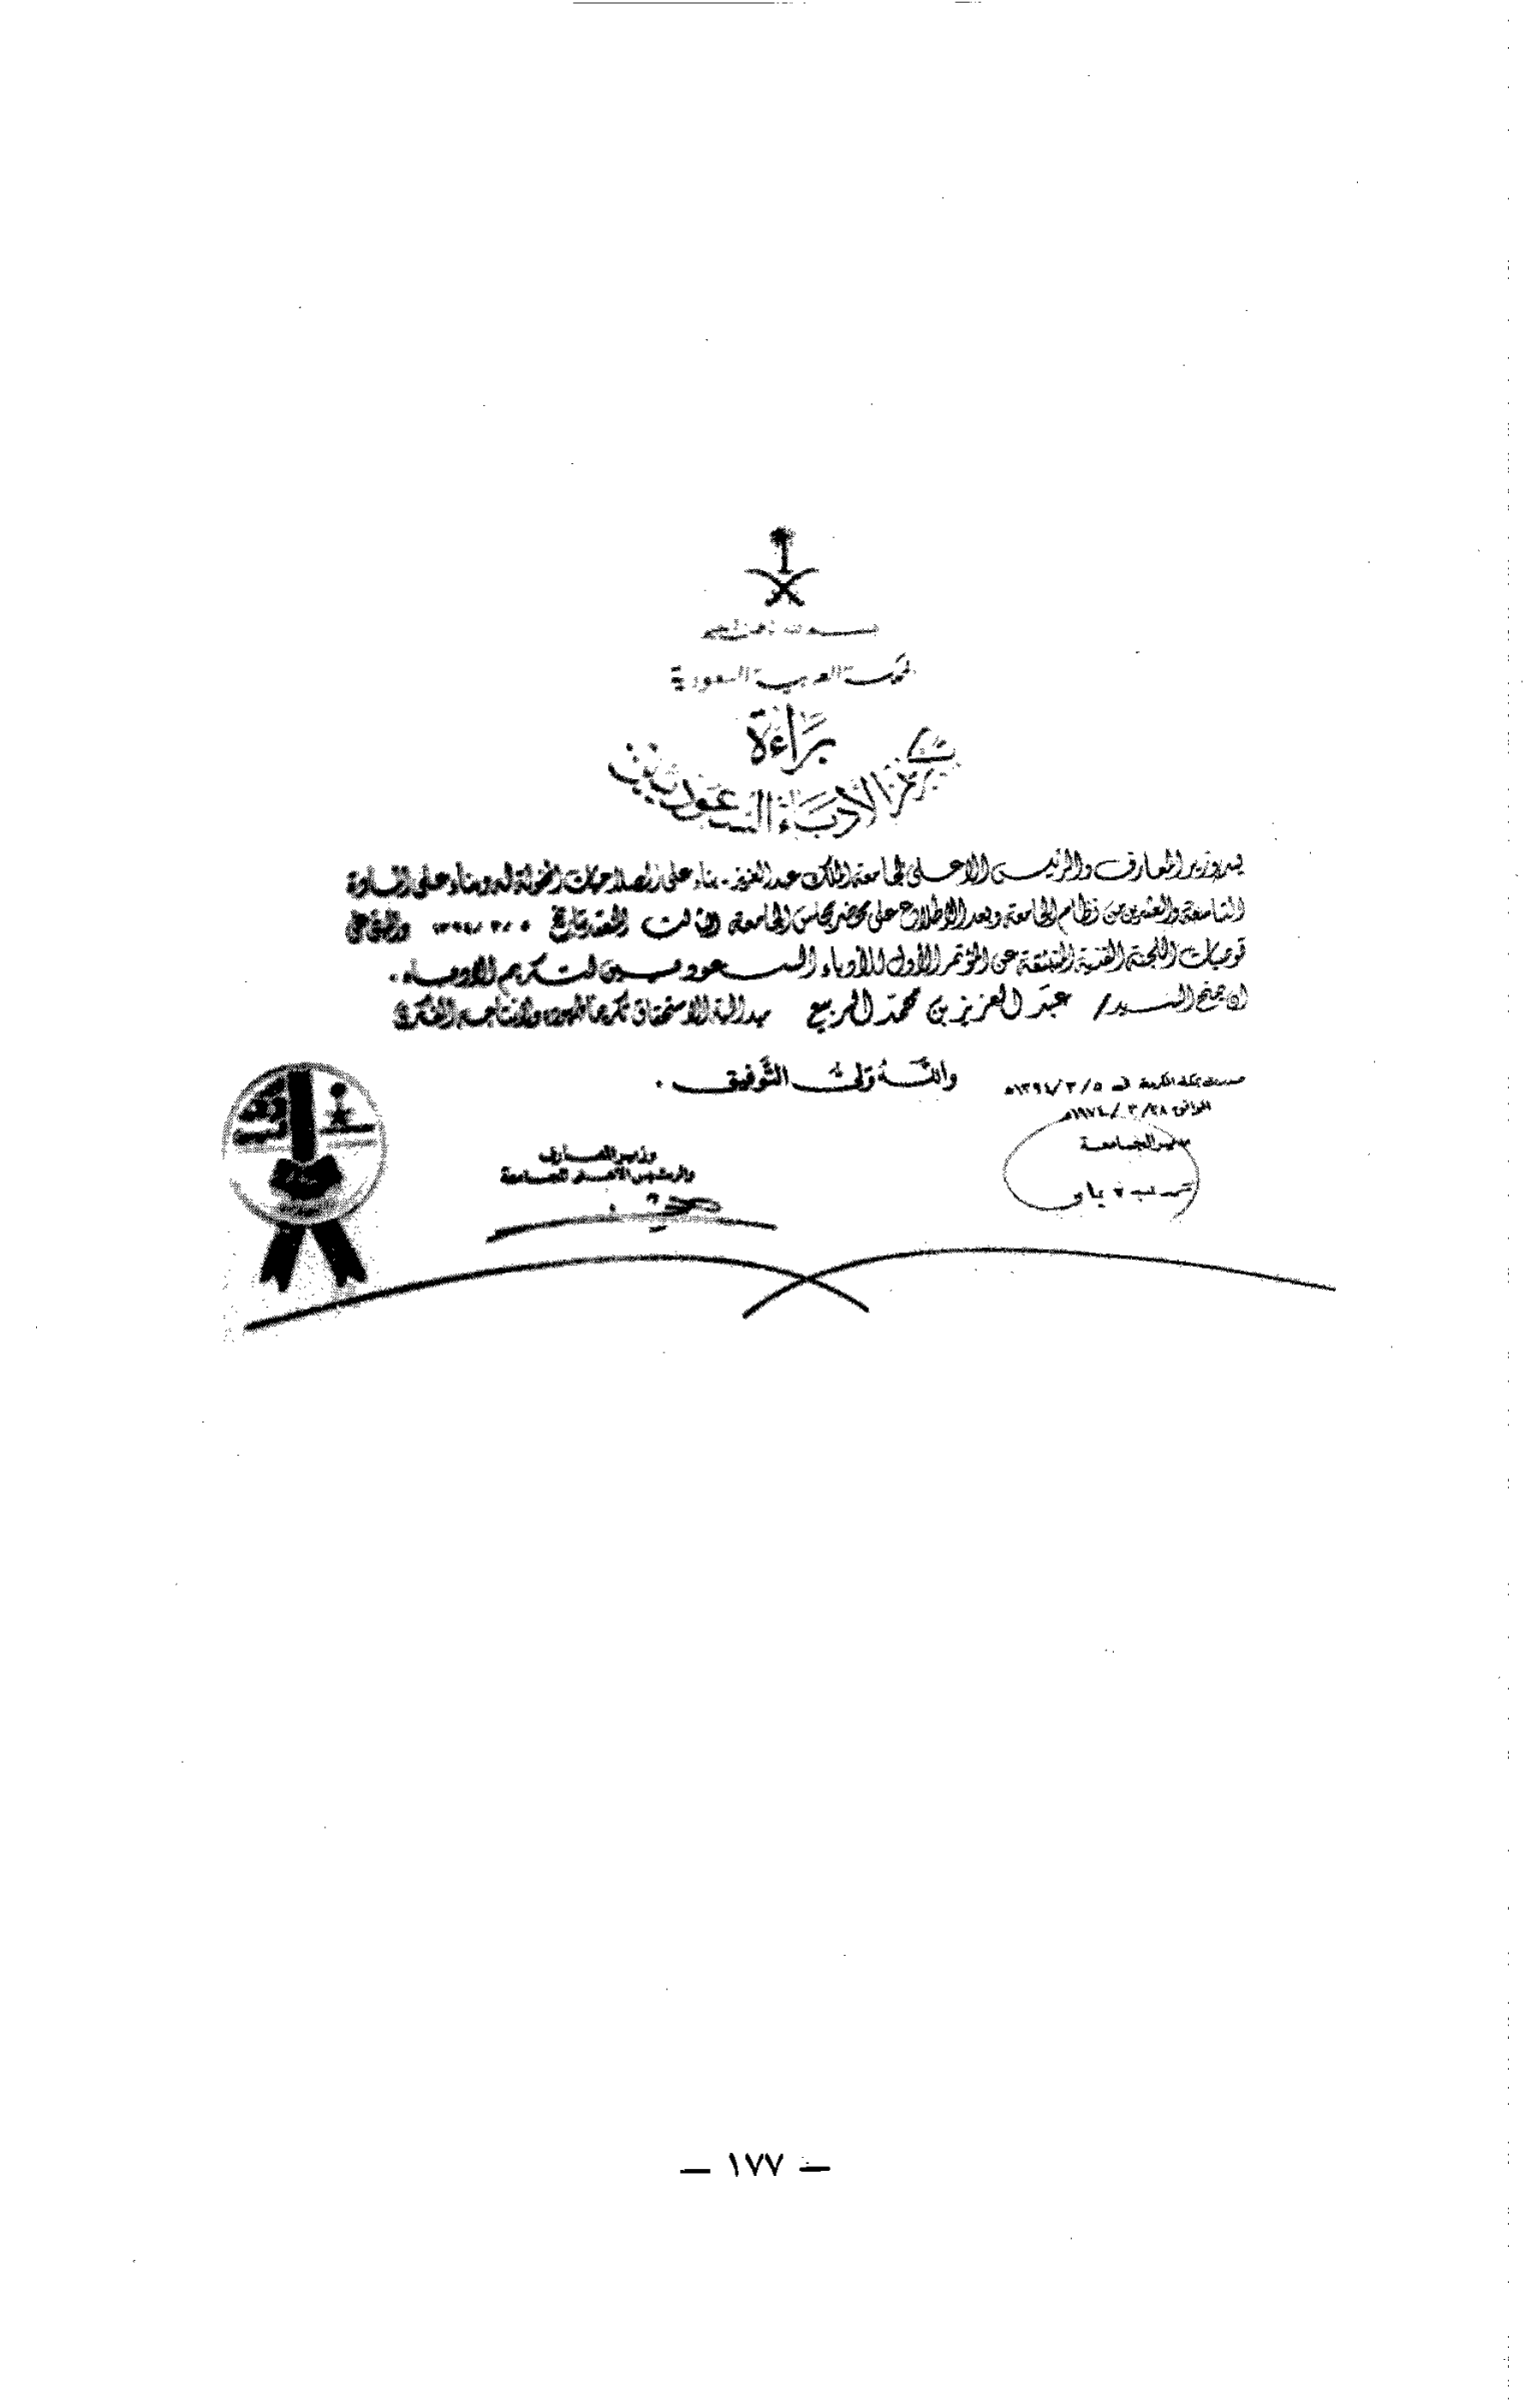 بسم الله الرحمن الرحيم
المملكة العربية السعودية
براءة
تكريم الأدباء السعوديين
يسر وزير المعارف والرئيس الاعلى لجامعة الملك عبد العزيز. بناء على الصلاحيات المخولة له وبناء على المادة
التاسعة والعشرين من نظام الجامعة وبعد الإطلاع على محضر مجلس الجامعة الثالث المنعقد بتاريخ
توصيات اللجنة الفنية المنبثقة عن المؤتمر الأول للأدباء السعوديين لتكريم الأدباء .
ان يمنح السيد / عبد العزيز بن محمد الربيع ميدالية الاستحقاق تكريما لجهوده وانتاجه الفكري
والله ولي التوفيق .
مكة المكرمة في ١٣٩٤/٣/٥هـ
الموافق ١٩٧٤/٣/٢٨م
مدير الجامعة
وزير المعارف
والرئيس الأعلى للجامعة
— ١٧٧ —